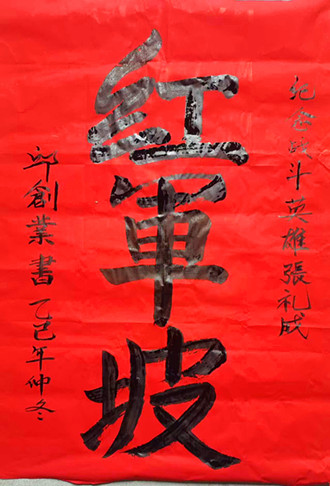 纪念战斗英雄張礼成
紅軍坡
邱創業書 乙巳年仲冬